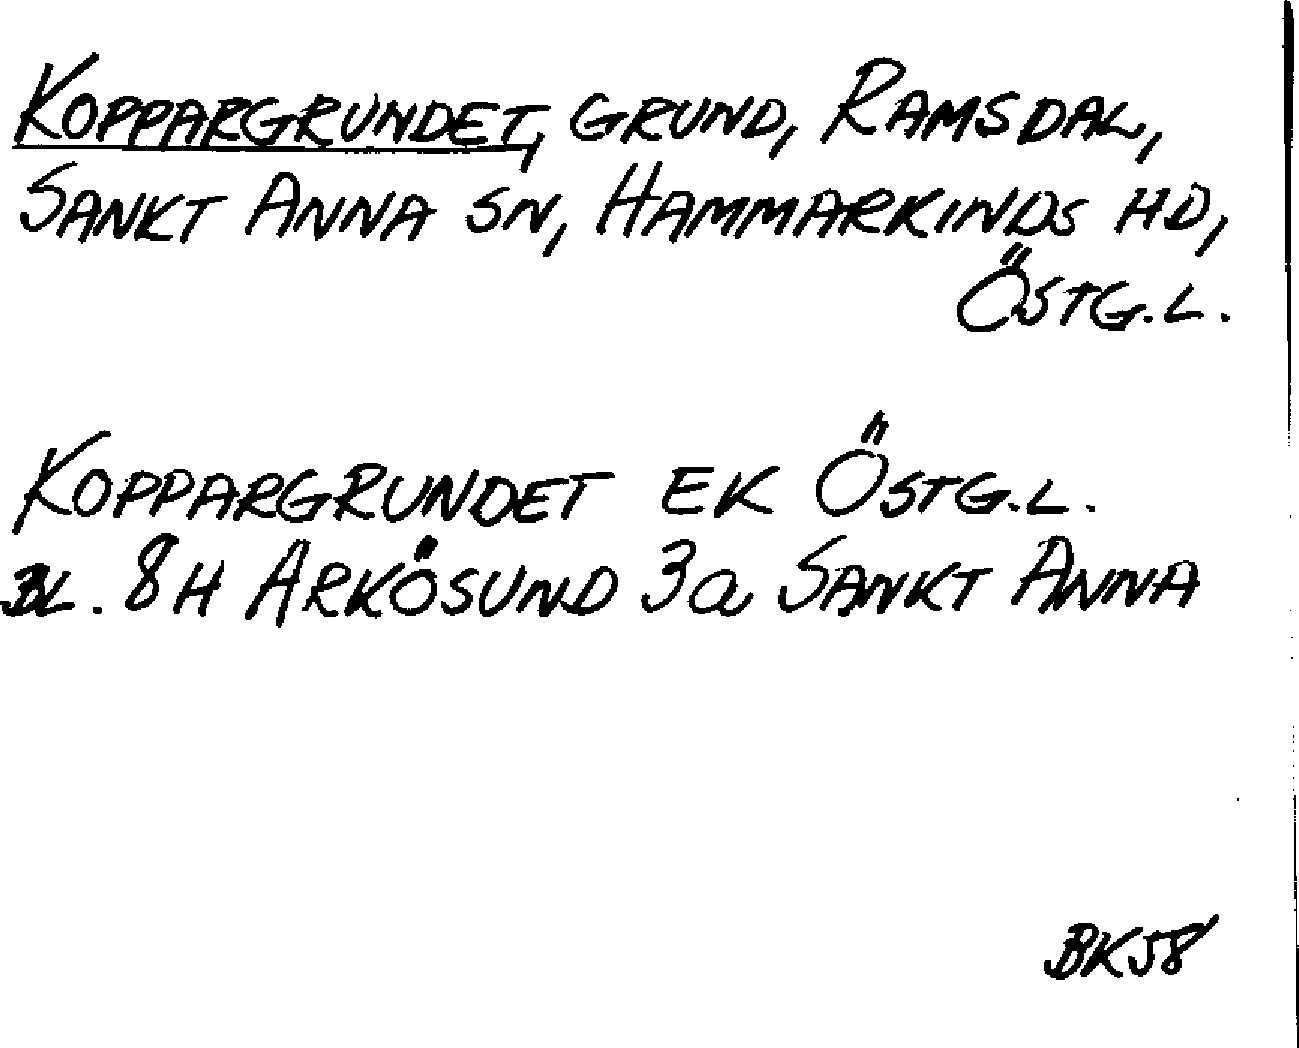 KOPPARGRUNDET, GRUND, RAMSDAL,
SANKT ANNA SN, HAMMARKINDS HD,
ÖSTG.L.
KOPPARGRUNDET EK ÖSTG.L.
BL. 8H ARKÖSUND 3a SANKT ANNA
BK58